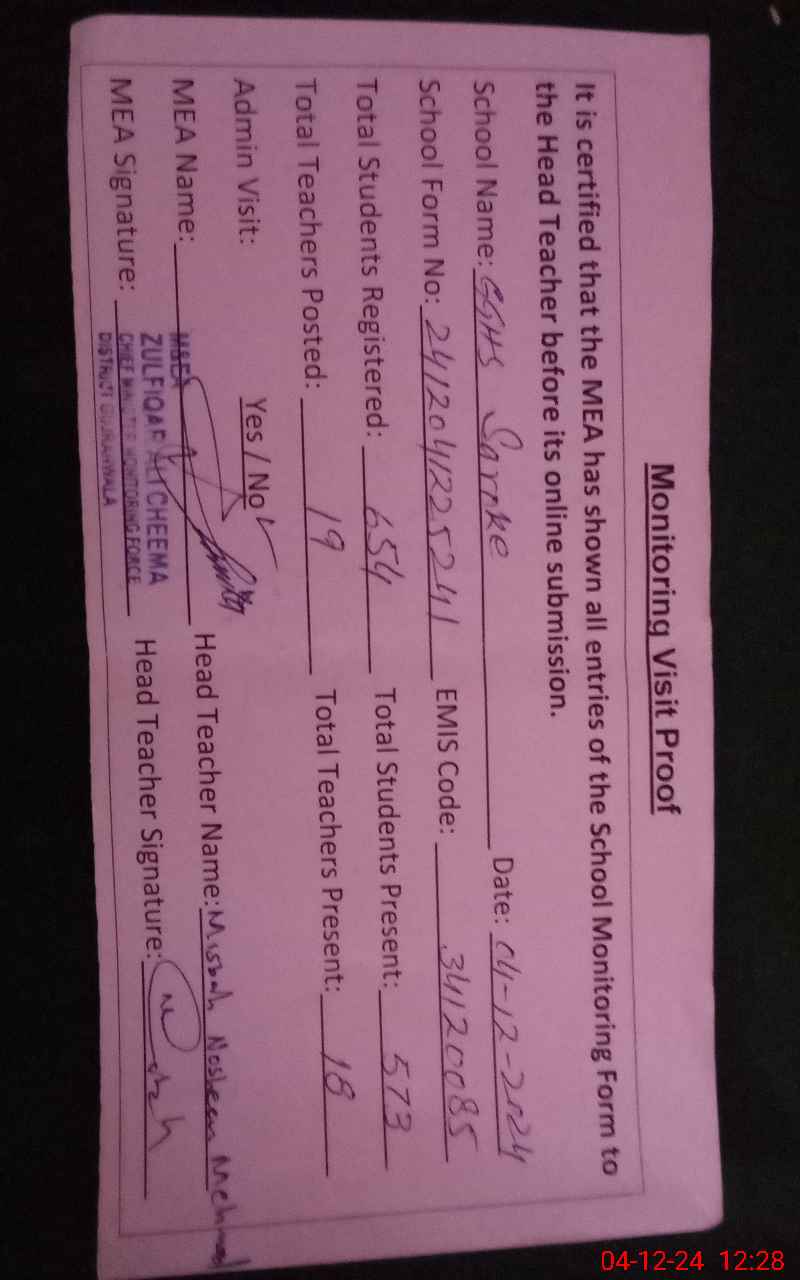 Monitoring Visit Proof
It is certified that the MEA has shown all entries of the School Monitoring Form to
the Head Teacher before its online submission.
School Name: GGHS Saroke Date: 04-12-2024
School Form No: 2412041225241 EMIS Code: 34120085
Total Students Registered: 654 Total Students Present: 573
Total Teachers Posted: 19 Total Teachers Present: 18
Admin Visit: Yes / No ✓
MEA Name: Head Teacher Name: Misbah Nosheen Mehmood
MEA Signature: Head Teacher Signature:
M&EA
ZULFIQAR ALI CHEEMA
CHIEF MINISTER MONITORING FORCE
DISTRICT GUJRANWALA
04-12-24 12:28